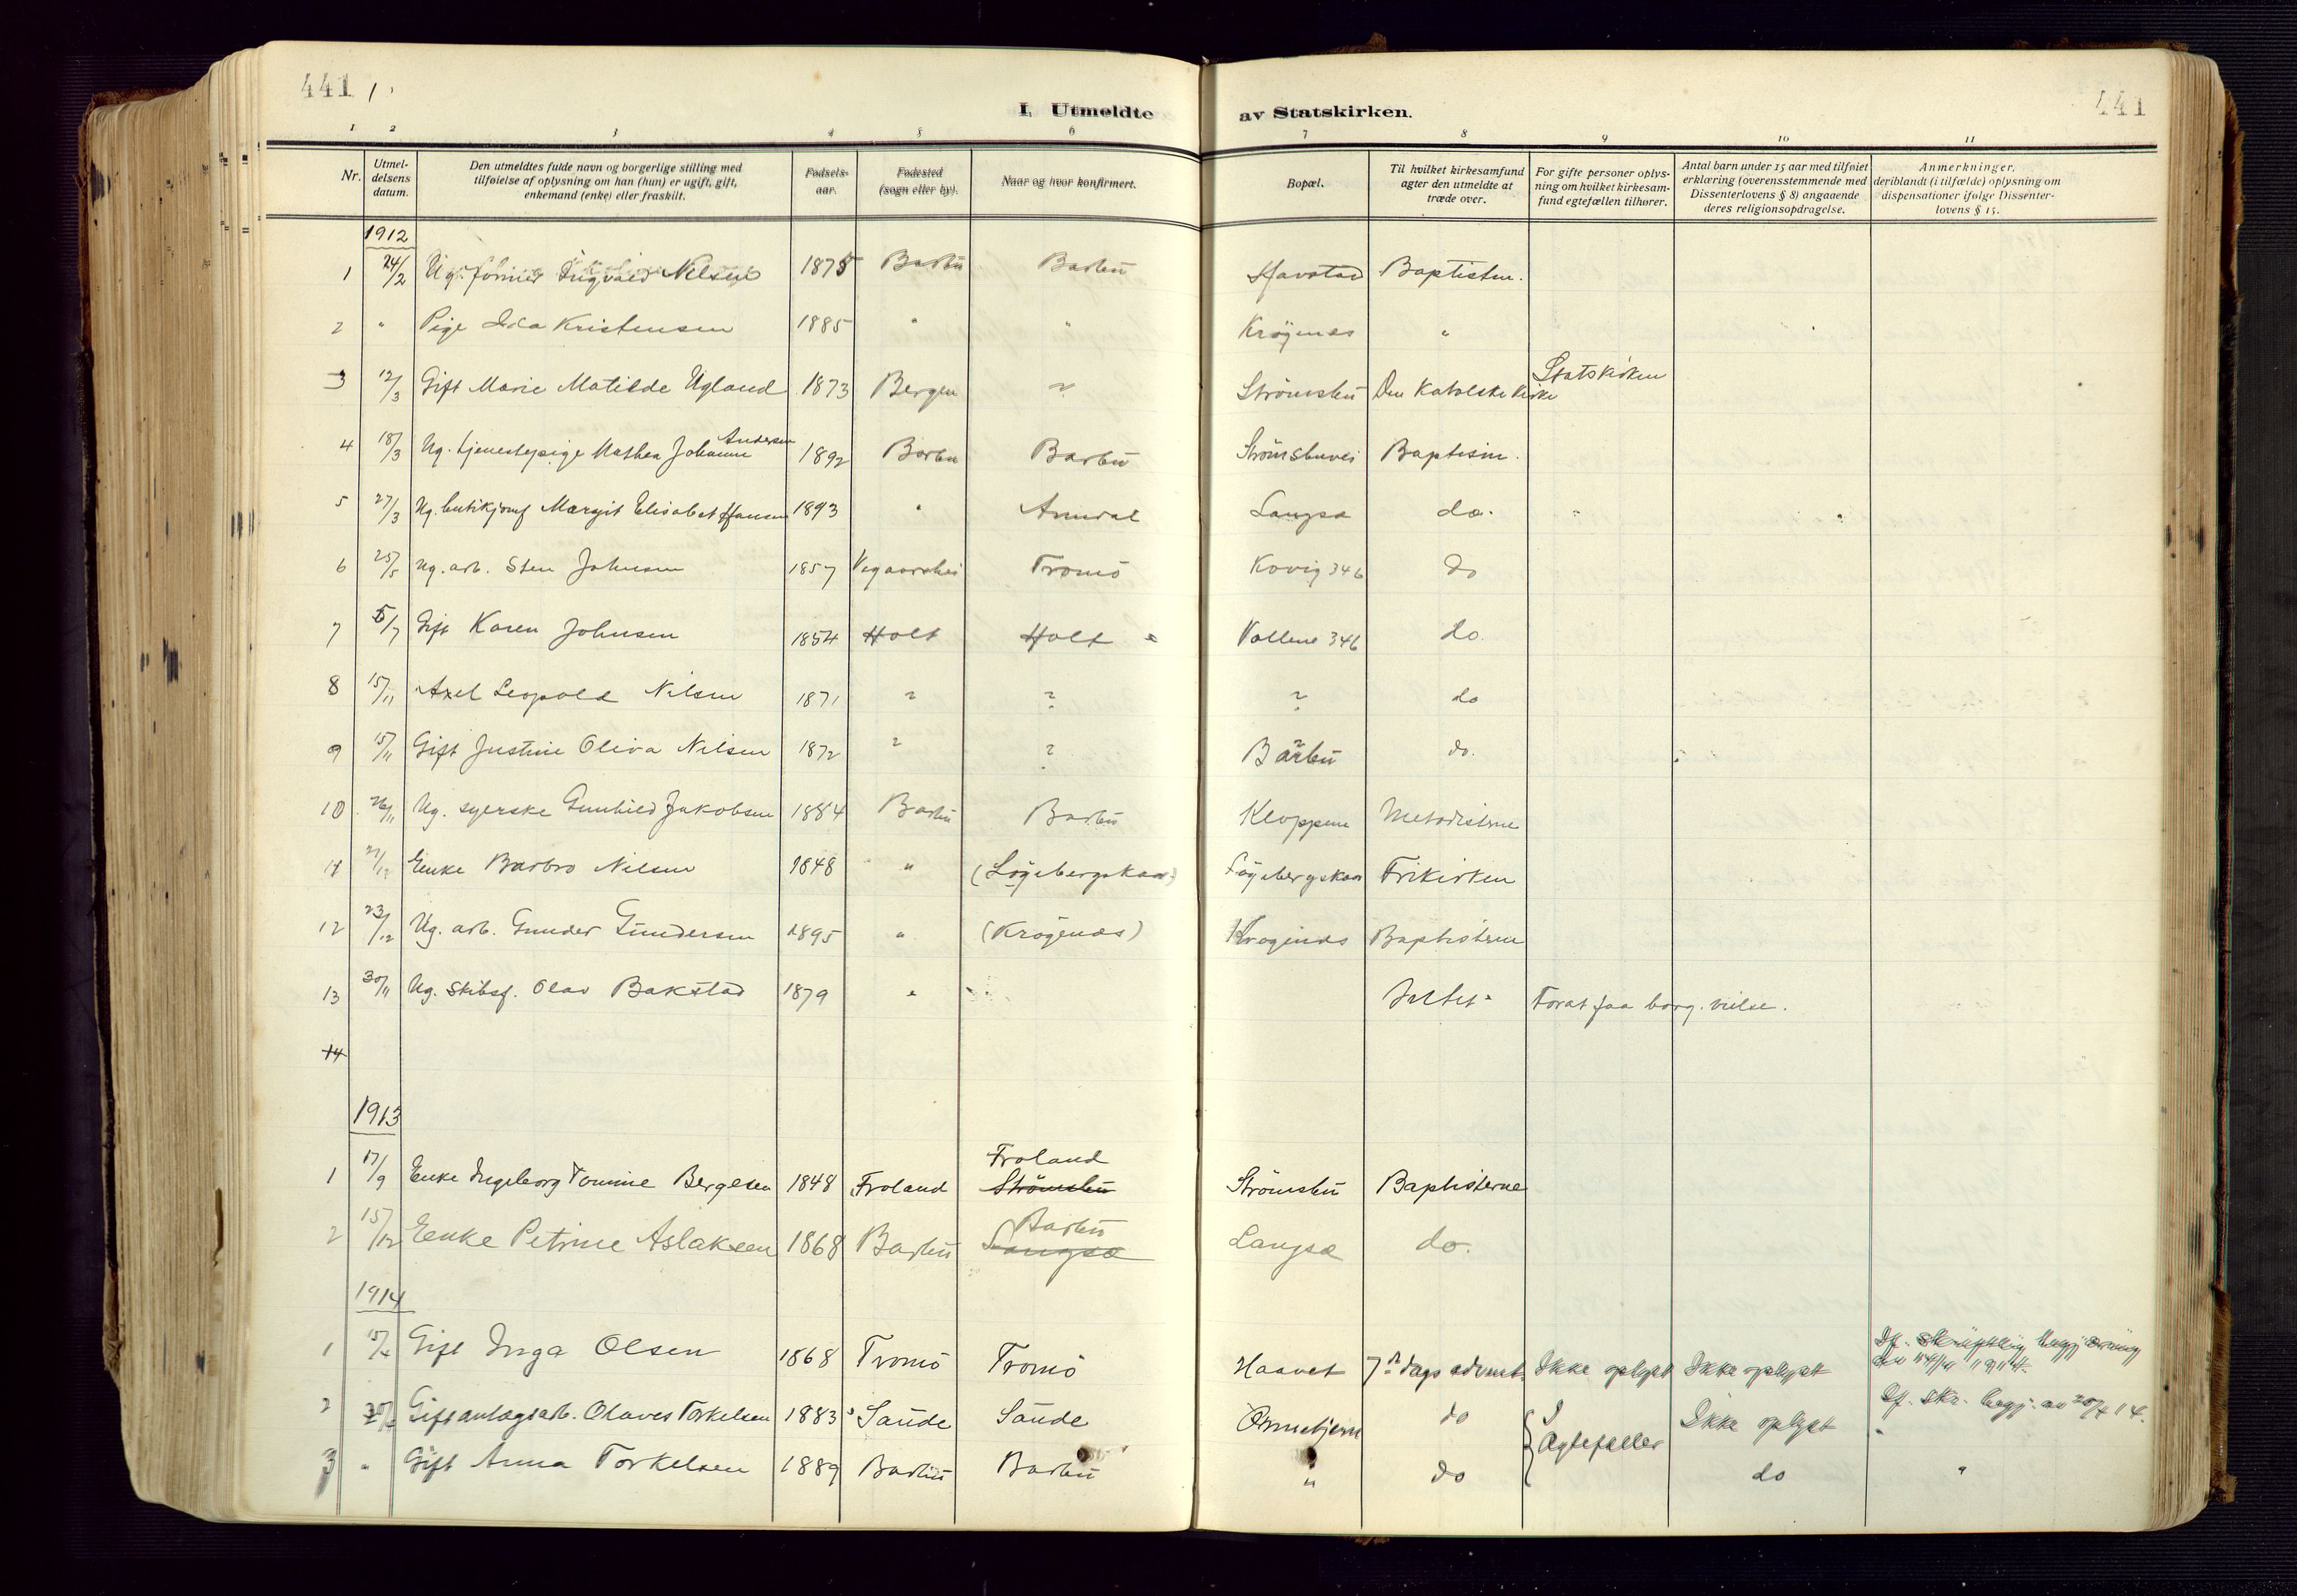 441
441
I. Utmeldte av Statskirken.
1 2 3 4 5 6 7 8 9 10 11
Nr.
Utmel-
delsens
datum.
Den utmeldtes fulde navn og borgerlige stilling med
tilføielse af oplysning om han (hun) er ugift, gift,
enkemand (enke) eller fraskilt.
Fødsels-
aar.
Fødested
(sogn eller by).
Naar og hvor konfirmert.
Bopæl.
Til hvilket kirkesamfund
agter den utmeldte at
træde over.
For gifte personer oplys-
ning om hvilket kirkesam-
fund egtefællen tilhører.
Antal barn under 15 aar med tilføiet
erklæring (overensstemmende med
Dissenterlovens § 8) angaaende
deres religionsopdragelse.
Anmerkninger,
deriblandt (i tilfælde) oplysning om
dispensationer ifølge Dissenter-
lovens § 15.
1912
1 24/2 Ug. Ingvald Nelsen 1875 Barbu Barbu Havstad Baptisten.
2 " Pige Ida Kristensen 1885 " " Krøgenes "
3 12/3 Gift Marie Matilde Ugland 1873 Bergen ? Strömsbu Den Katolske Kirke Statskirken
4 18/3 Ug. tjenestepige Mathea Johanne Andersen 1892 Barbu Barbu Strömsbuvei Baptism.
5 27/3 Ug. butikjomf Margit Elisabet Hansen 1893 " Arendal Langsæ do.
6 25/5 Ug. arb. Sten Johnsen 1857 Vegaarshei Tromö Kovig 346 do
7 5/7 Gift Karen Johnsen 1854 Holt Holt Vollene 346 do.
8 15/11 Axel Leopold Nilsen 1871 ? ? ? do
9 15/11 Gift Justine Oliva Nilsen 1872 ? ? Barbu do.
10 26/11 Ug. syerske Gunhild Jakobsen 1884 Barbu Barbu Kloppene Metodisterne
11 Enke Barbro Nilsen 1848 " (Lögebergskaar) Lögebergskaar Frikirken
12 23/12 Ug. arb. Gunder Gundersen 1895 " (Krögenæs) Krogenæs Baptisterne
13 30/11 Ug. Skibsf. Olav Bakstad 1879 " Intet. For at faa borg. vielse.
14
1913
Froland
1 17/9 Enke Ingeborg Tomine Bergesen 1848 Froland Strömsbu Strömsbu Baptisterne
Barbu
2 15/12 Enke Petrine Aslaksen 1868 Barbu Langsæ Langsæ do.
1914
1 15/4 Gift Inga Olsen 1868 Tromö Tromö Haavet 7de dags advent. Ikke oplyst Ikke oplyst If. skriftlig begjæring
2 20/4 Gift anlagsarb. Olaves Torkelsen 1883 Saude Saude do Ægtefæller Ikke oplyst If. skr. begj. av 20/4 14.
3 " Gift Anna Torkelsen 1889 Barbu Barbu " do do "